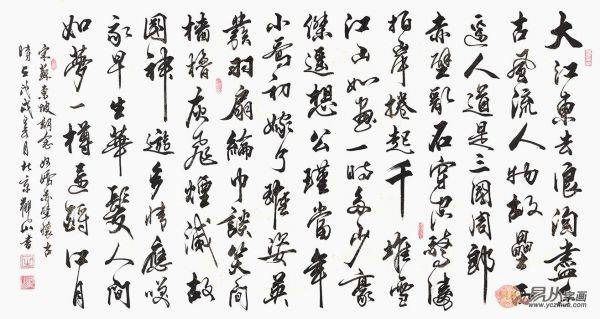 大江東去浪淘盡千
古風流人物故壘西
邊人道是三國周郎
赤壁亂石穿空驚濤
拍岸捲起千堆雪
江山如畫一時多少豪
傑遙想公瑾當年
小喬初嫁了雄姿英
發羽扇綸巾談笑間
檣櫓灰飛煙滅故
國神遊多情應笑
我早生華髮人間
如夢一樽還酹江月
宋蘇東坡詞念奴嬌赤壁懷古
易从字画
www.yczihua.com